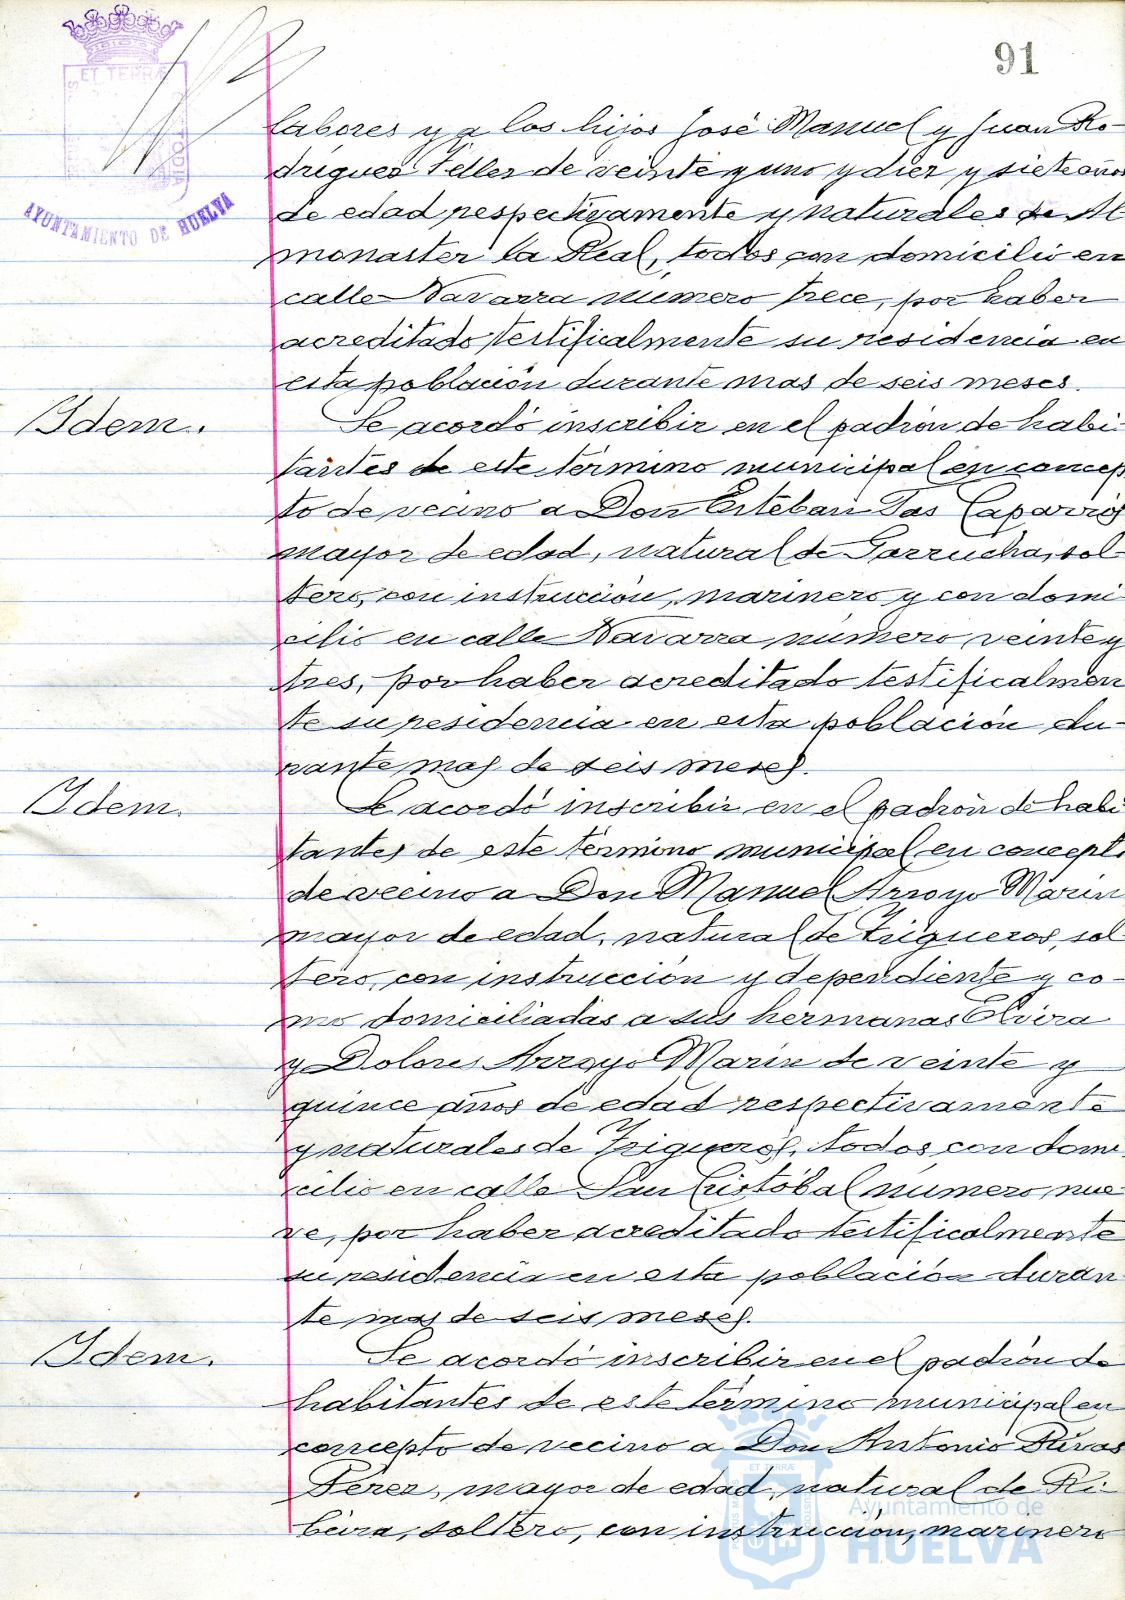 91
ET TERRÆ
AYUNTAMIENTO DE HUELVA
labores y a los hijos José Manuel y Juan Ro-
drigues Teller de veinte y uno y diez y siete años
de edad respectivamente y naturales de Al
monaster la Real, todos con domicilio en
calle Navarra número trece, por haber
acreditado testificalmente su residencia en
esta población durante mas de seis meses.
Idem.
Se acordó inscribir en el padrón de habi-
tantes de este término municipal en concep
to de vecino a Don Esteban Tas Caparrós
mayor de edad, natural de Garrucha, sol-
tero, con instrucción, marinero y con domi-
cilio en calle Navarra número veinte y
tres, por haber acreditado testificalmen
te su residencia en esta población du-
rante mas de seis meses.
Idem.
Se acordó inscribir en el padrón de habi
tantes de este término municipal en concepto
de vecino a Don Manuel Arroyo Marin
mayor de edad, natural de Trigueros, sol-
tero, con instrucción y dependiente y co-
mo domiciliadas a sus hermanas Elvira
y Dolores Arroyo Marin de veinte y
quince años de edad respectivamente
y naturales de Trigueros, todos con domi
cilio en calle San Cristóbal número nue-
ve, por haber acreditado testificalmente
su residencia en esta población duran
te mas de seis meses.
Idem.
Se acordó inscribir en el padrón de
habitantes de este término municipal en
concepto de vecino a Don Antonio Rivas
Pérez, mayor de edad, natural de Ri-
beira, soltero, con instrucción, marinero
Ayuntamiento de
HUELVA